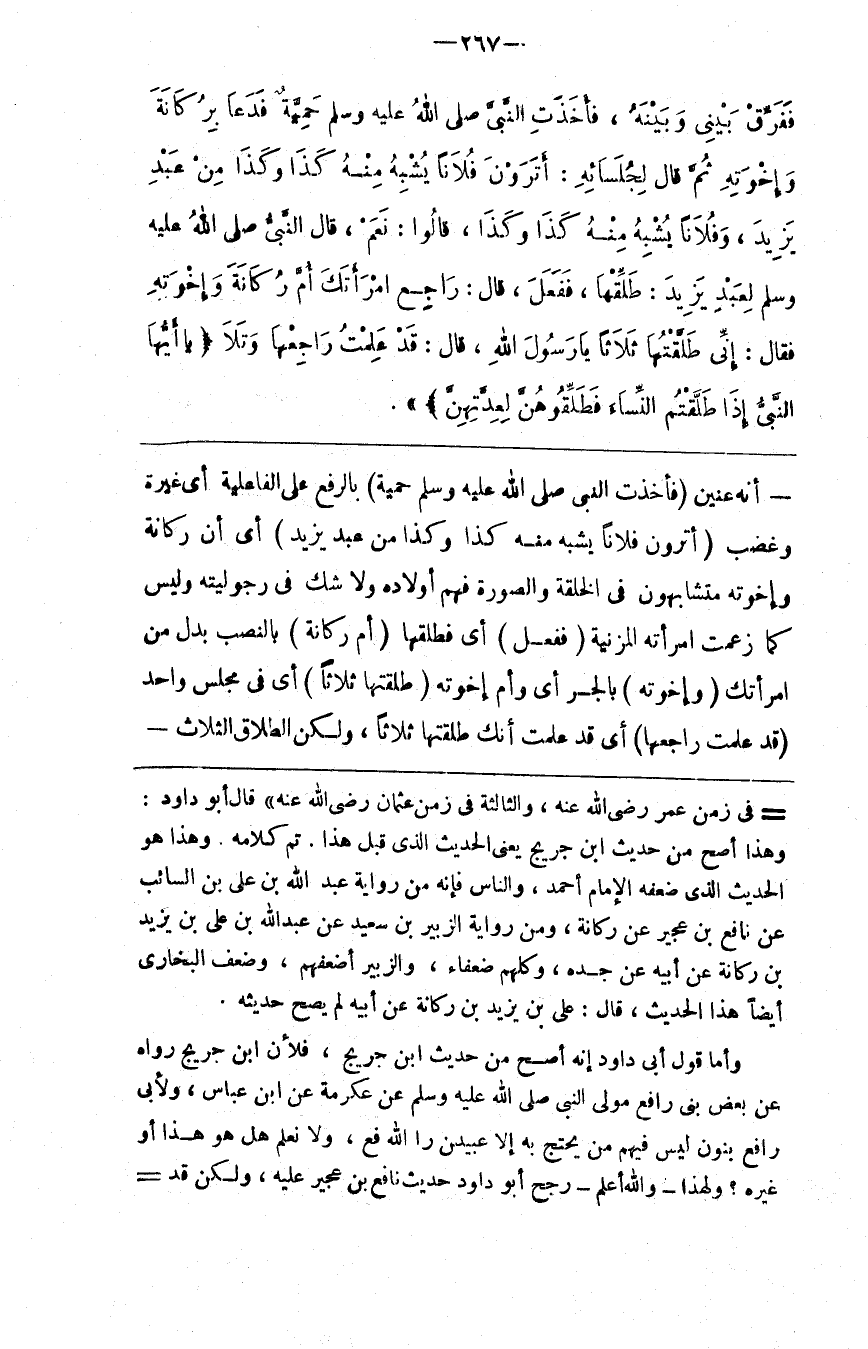 —٢٦٧—
فَفَرِّقْ بَيْنِي وَبَيْنَهُ ، فأَخَذَتِ النَّبيَّ صلى اللهُ عليه وسلم حَمِيَّةٌ فَدَعَا بِرُكَانَةَ
وَإِخْوَتِهِ ثُمَّ قال لِجُلَسَائِهِ : أَتَرَوْنَ فُلَاناً يُشْبِهُ مِنْهُ كَذَا وكَذَا مِنْ عَبْدِ
يَزِيدَ ، وَفُلَاناً يُشْبِهُ مِنْهُ كَذَا وكَذَا ، قالُوا : نَعَمْ ، قال النَّبيُّ صلى اللهُ عليه
وسلم لِعَبْدِ يَزِيدَ : طَلِّقْهَا ، فَفَعَلَ ، قال : رَاجِع امْرَأَتَكَ أُمَّ رُكَانَةَ وَإِخْوَتِهِ
فقال : إِنِّي طَلَّقْتُهَا ثَلَاثاً يَارَسُولَ اللهِ ، قال : قَدْ عَلِمْتُ رَاجِعْهَا وَتَلَا ﴿ ياأَيُّهَا
النَّبيُّ إِذَا طَلَّقْتُم النِّسَاءَ فَطَلِّقُوهُنَّ لِعِدَّتِهِنَّ ﴾ » .
— أنه عنين (فأخذت النبى صلى الله عليه وسلم حمية) بالرفع على الفاعلية أى غيرة
وغضب ( أترون فلاناً يشبه منه كذا وكذا من عبد يزيد ) أى أن ركانة
وإخوته متشابهون فى الخلقة والصورة فهم أولاده ولا شك فى رجوليته وليس
كما زعمت امرأته المزنية ( ففعل ) أى فطلقها ( أم ركانة ) بالنصب بدل من
امرأتك ( وإخوته ) بالجر أى وأم إخوته ( طلقتها ثلاثاً ) أى فى مجلس واحد
(قد علمت راجعها) أى قد علمت أنك طلقتها ثلاثاً ، ولكن الطلاق الثلاث —
= فى زمن عمر رضى الله عنه ، والثالثة فى زمن عثمان رضى الله عنه» قال أبو داود :
وهذا أصح من حديث ابن جريج يعنى الحديث الذى قبل هذا . تم كلامه . وهذا هو
الحديث الذى ضعفه الإمام أحمد ، والناس فإنه من رواية عبد الله بن على بن السائب
عن نافع بن عجير عن ركانة ، ومن رواية الزبير بن سعيد عن عبدالله بن على بن يزيد
بن ركانة عن أبيه عن جده ، وكلهم ضعفاء ، والزبير أضعفهم ، وضعف البخارى
أيضاً هذا الحديث ، قال : على بن يزيد بن ركانة عن أبيه لم يصح حديثه .
وأما قول أبى داود إنه أصح من حديث ابن جريج ، فلأن ابن جريج رواه
عن بعض بنى رافع مولى النبى صلى الله عليه وسلم عن عكرمة عن ابن عباس ، ولأبى
رافع بنون ليس فيهم من يحتج به إلا عبيدن را الله فع ، ولا نعلم هل هو هذا أو
غيره ؟ ولهذا ــ والله أعلم ــ رجح أبو داود حديث نافع بن عجير عليه ، ولكن قد =